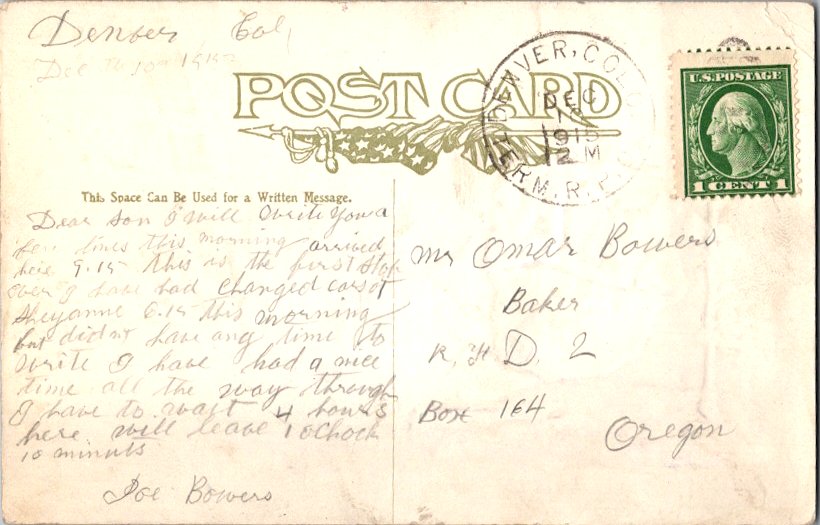 Denver Col,
Dec 10th 1915
POST CARD
DENVER, COLO.
DEC
1915
2 M
TERM. R. P. O.
U.S. POSTAGE
1 CENT 1
This Space Can Be Used for a Written Message.
Dear Son I will write you a
few lines this morning arrived
here 9.15 this is the first stop
over I have had changed cars at
Sheyanne 6.15 this morning
but didnt have any time to
write I have had a nice
time all the way through
I have to wait 4 hours
here will leave 1 oClock
10 minuts
Joe Bowers
Mr Omar Bowers
Baker
R, F D. 2
Box 164
Oregon